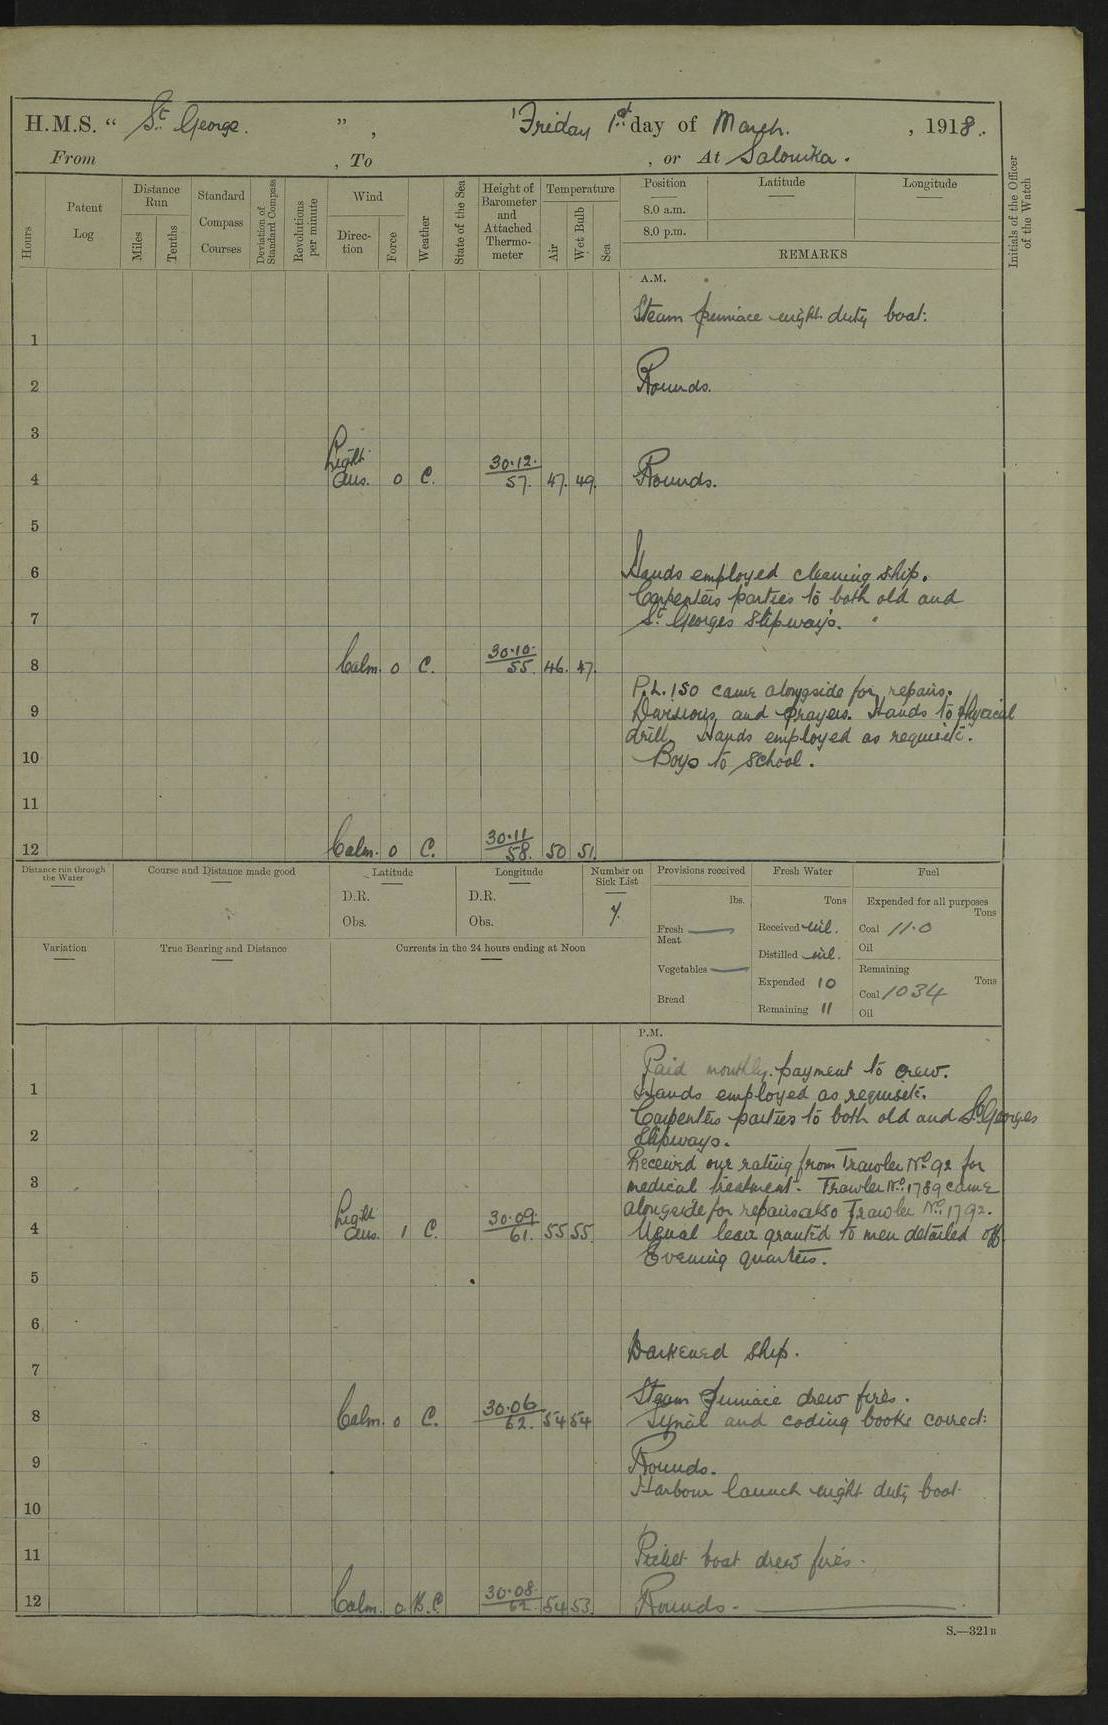 H.M.S. “ St George. ” , Friday 1st day of March. , 1918.
From , To , or At Salonika.
Hours
Patent Log
Distance Run
Miles
Tenths
Standard Compass Courses
Deviation of Standard Compass
Revolutions per minute
Wind
Direction
Force
Weather
State of the Sea
Height of Barometer and Attached Thermometer
Temperature
Air
Wet Bulb
Sea
Position
8.0 a.m.
8.0 p.m.
Latitude
Longitude
REMARKS
Initials of the Officer of the Watch
A.M.
Steam pinnace night duty boat.
1
2 Rounds.
3
Light
4 airs. 0 C. 30.12. 57. 47. 49. Rounds.
5
6 Hands employed cleaning ship.
Carpenters parties to both old and
7 St Georges Slipways.
8 Calm. 0 C. 30.10. 55. 46. 47.
P.L. 150 came alongside for repairs.
9 Divisions and Prayers. Hands to physical
drill. Hands employed as requisite.
10 Boys to School.
11
12 Calm. 0 C. 30.11 58. 50 51.
Distance run through the Water
Course and Distance made good
Latitude
D.R.
Obs.
Longitude
D.R.
Obs.
Number on Sick List
7.
Provisions received
lbs.
Fresh Meat
Vegetables
Bread
Fresh Water
Tons
Received nil.
Distilled nil.
Expended 10
Remaining 11
Fuel
Expended for all purposes
Tons
Coal 11.0
Oil
Remaining
Tons
Coal 1034
Oil
Variation
True Bearing and Distance
Currents in the 24 hours ending at Noon
P.M.
Paid monthly payment to crew.
1 Hands employed as requisite.
Carpenters parties to both old and St Georges
2 Slipways.
Received one rating from Trawler No 92 for
3 medical treatment. Trawler No 1789 came
Light alongside for repairs also Trawler No 1792.
4 airs. 1 C. 30.09. 61. 55 55. Usual leave granted to men detailed off.
Evening quarters.
5
6
Darkened ship.
7
Steam Pinnace drew fires.
8 Calm. 0 C. 30.06 62. 54 54 Signal and coding books correct.
9 Rounds.
Harbour launch night duty boat.
10
11 Picket boat drew fires.
12 Calm. 0 B.C. 30.08. 62. 54 53. Rounds.
S.—321B